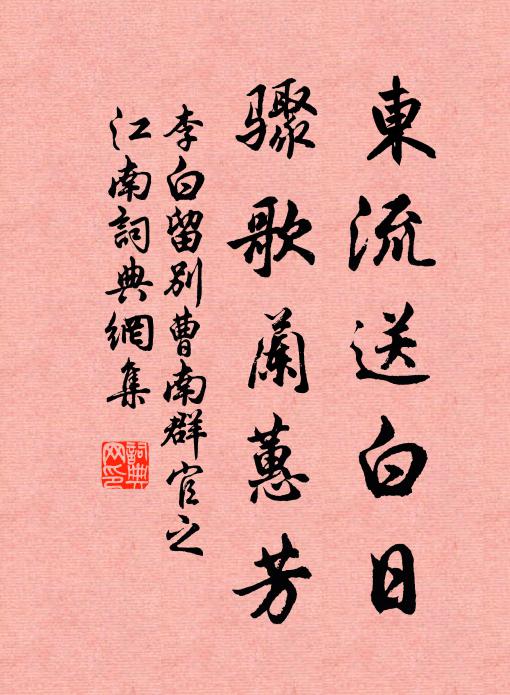 東流送白日
驟歌蘭蕙芳
李白留別曹南群官之
江南詞典網集
詞典
网印